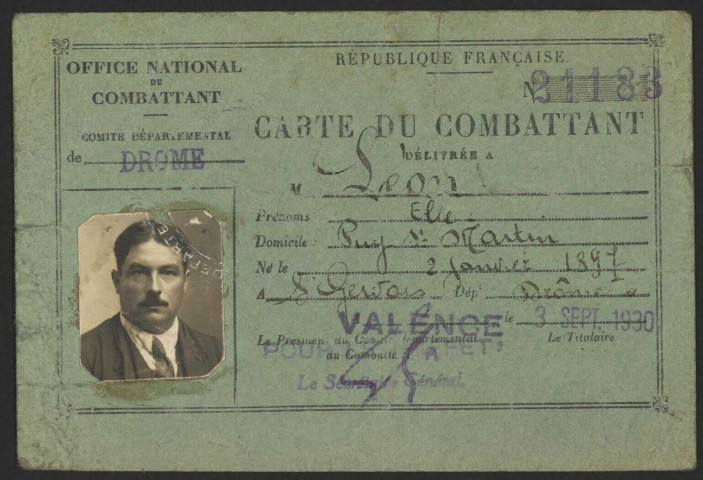 OFFICE NATIONAL
DU
COMBATTANT
COMITÉ DÉPARTEMENTAL
de DROME
RÉPUBLIQUE FRANÇAISE
N 21183
CARTE DU COMBATTANT
DÉLIVRÉE A
M Léon
Prénoms Elie
Domicile : Puy St Martin
Né le 2 janvier 1897
A St Gervais Dépt Drôme
VALENCE le 3 SEPT. 1930
Le Président du Comité départemental Le Titulaire
POUR
du Combattant
Le Secrétaire Général,